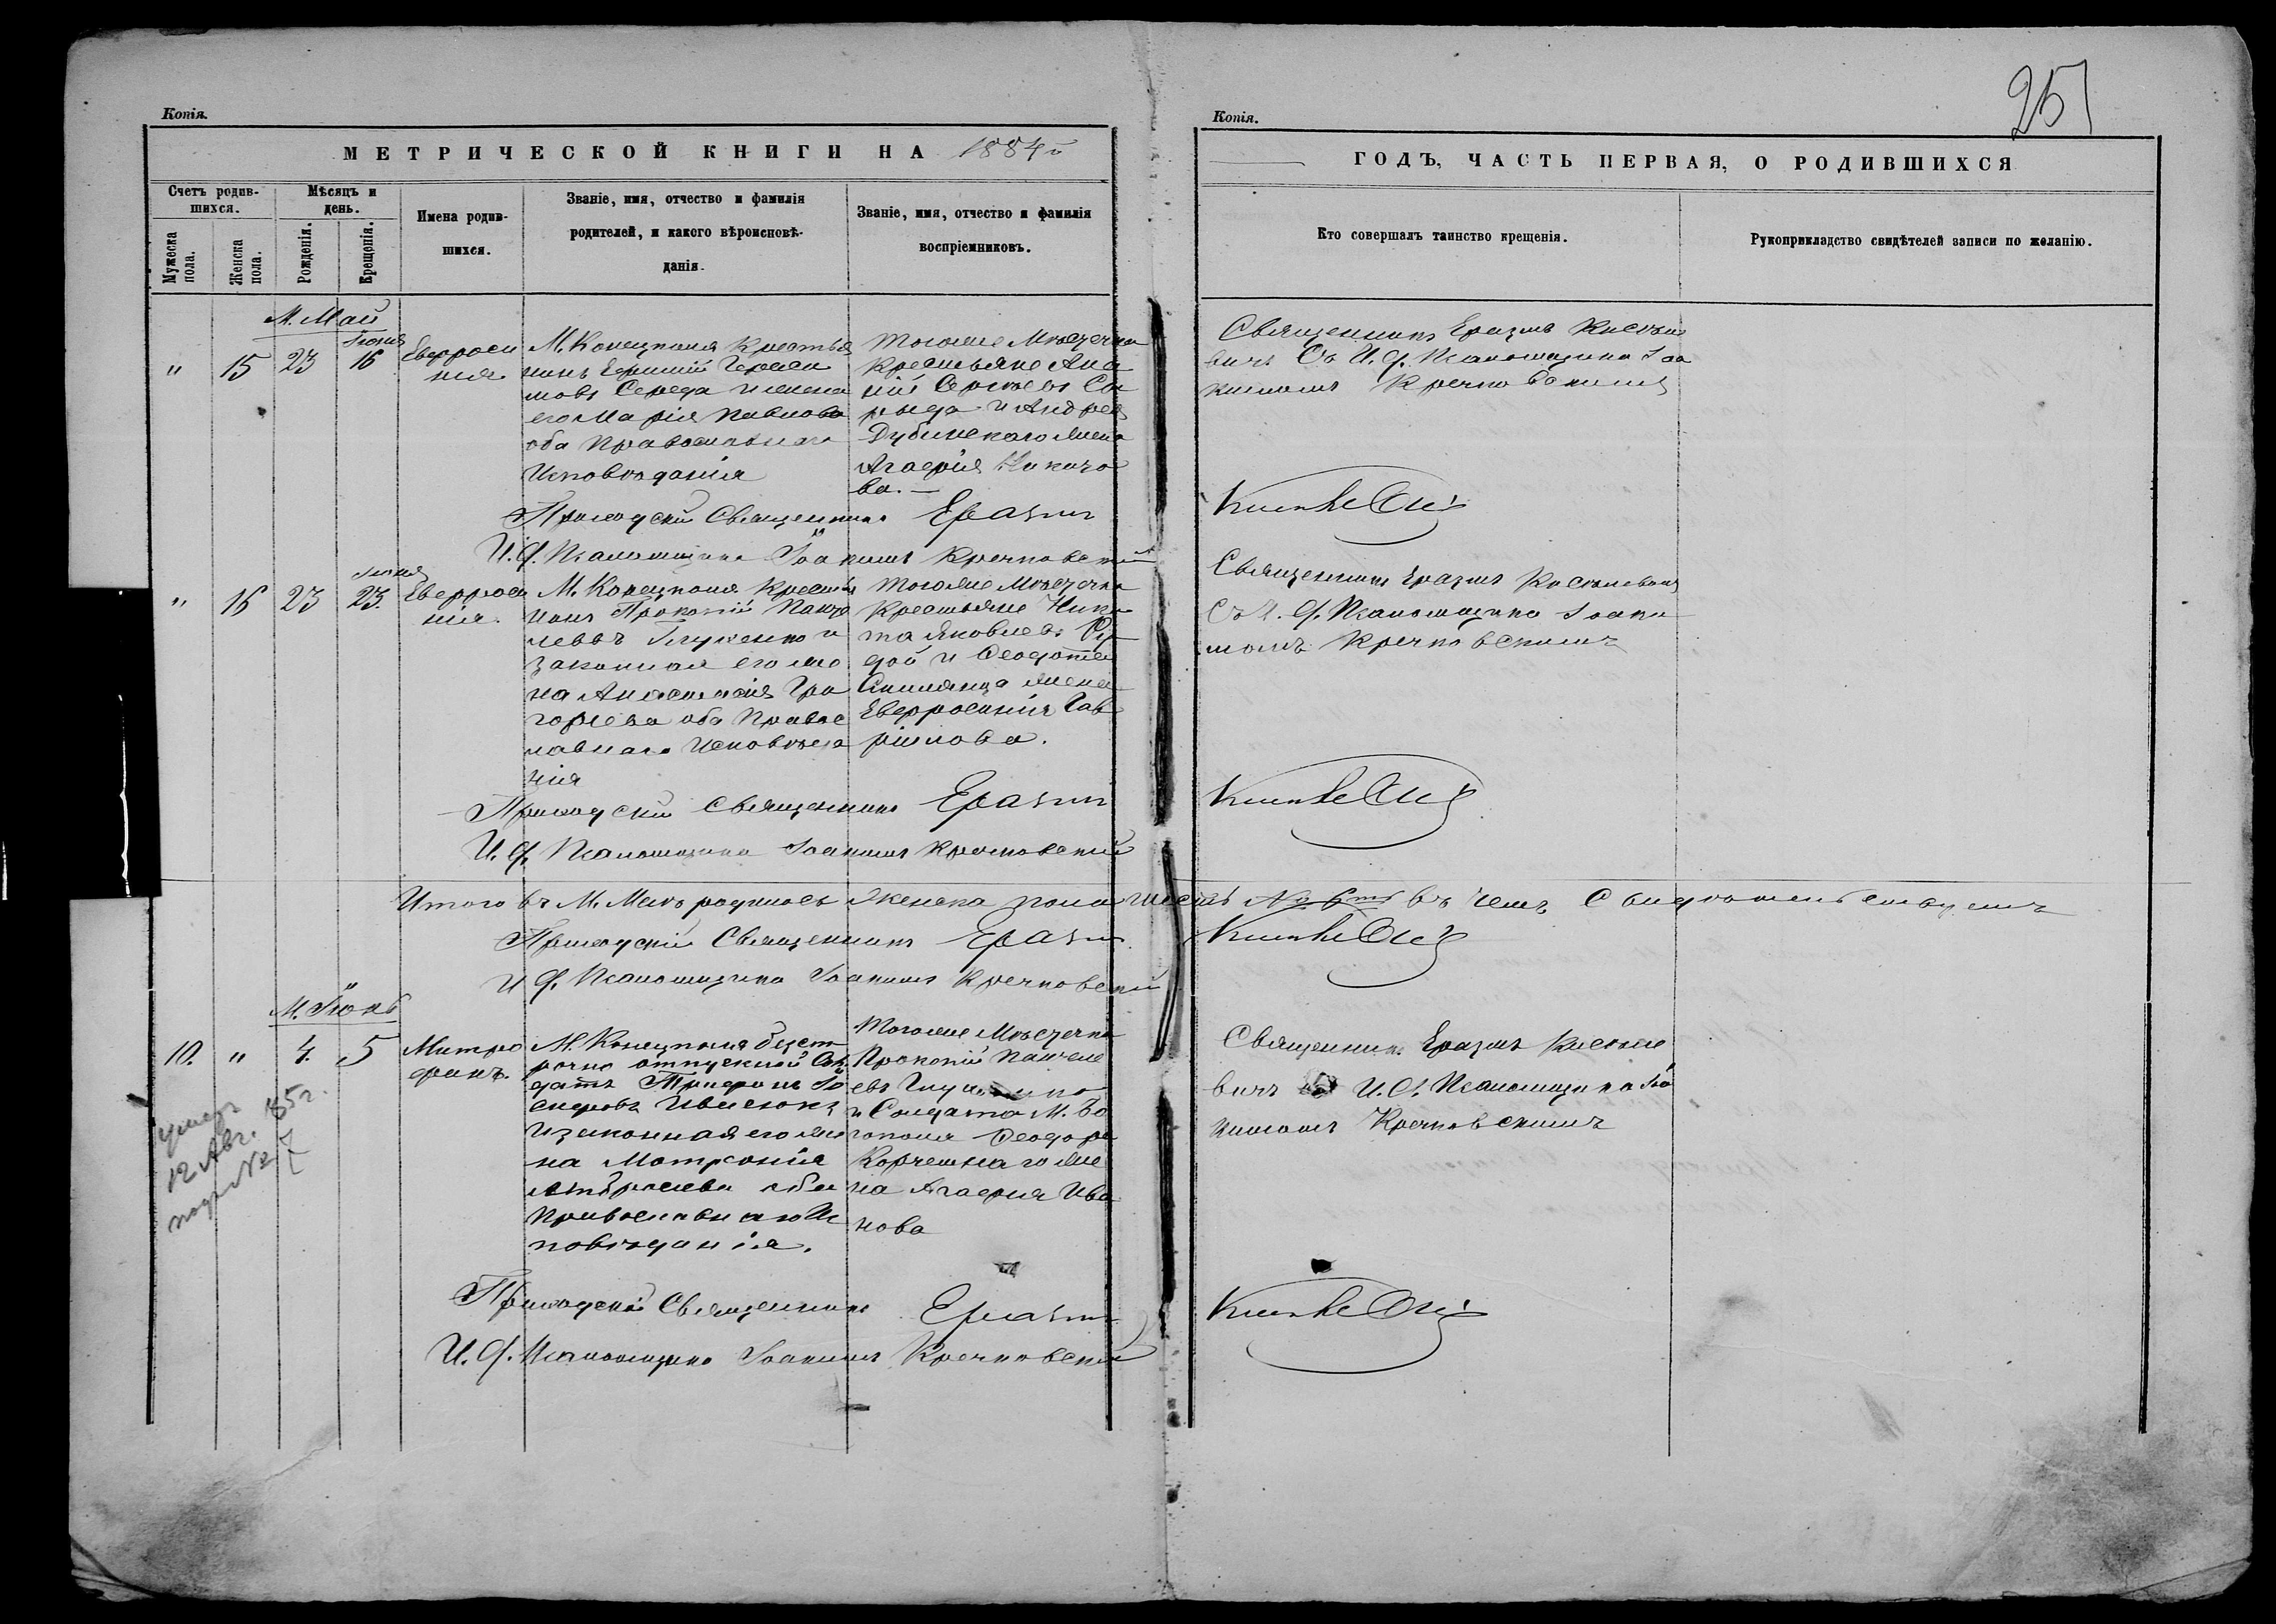 Копія.
МЕТРИЧЕСКОЙ КНИГИ НА 1884й
Счетъ родив-
шихся.
Мужеска
пола.
Женска
пола.
Мѣсяцъ и
день.
Рожденія.
Крещенія.
Имена родив-
шихся.
Званіе, имя, отчество и фамилія
родителей, и какого вѣроисповѣ-
данія.
Званіе, имя, отчество и фамилія
воспріемниковъ.
М. Май
"
15
23
Іюня
16
Евфроси
нія
М. Конецполя Крестья
нинъ Ефимій Гераси
мовъ Середа и жена
его Марія Павлова
оба Православнаго
Исповѣданія
Тогоже Мѣстечка
Крестьяне Ана
ній Сергѣевъ Се
реда и Андрея
Дубинскаго жена
Агафія
ва.—
Приходскій Священникъ Еразмъ
И. ф. Псаломщика Іоакимъ Кречковскій
"
16
23
Іюня
23.
Евфроси
нія.
М. Конецполя Крестья
нинъ Прокопій Панте
леевъ Глущенко и
законная его же
на Анастасія Гри
горьева оба Правос
лавнаго Исповѣда
нія
Тогоже Мѣстечка
Крестьяне Ники
та Яковлевъ Ру
дой и Феодота
жена
Евфросинія Гав
рилова.
Приходскій Священникъ Еразмъ
И. ф. Псаломщика Іоакимъ Кречковскій
Итого въ М. Маѣ родилось Женска пола шесть № 6ть въ чемъ Свидѣтельствуемъ
Приходскій Священникъ Еразмъ
И ф. Псаломщика Іоакимъ Кречковскій
М. Іюнь
10.
"
4.
5
Митро
фанъ.
М. Конецполя безст
рочно отпускной Сол
датъ Трифонъ Іо
сифовъ Ивасюкъ
и законная его же
на Матронія
Амбросіева оба
Православнаго Ис
повѣданія.
Тогоже Мѣстечка
Прокопій Пантеле
евъ Глущенко
и Солдата М. Бо
гополя Феодора
Корчемнаго же
на Агафія Ива
нова
умеръ
12 Авг. 85 г.
подъ № 7
Приходскій Священникъ Еразмъ
И. ф. Псаломщика Іоакимъ Кречковскій
Копія.
251
ГОДЪ, ЧАСТЬ ПЕРВАЯ, О РОДИВШИХСЯ
Кто совершалъ таинство крещенія.
Рукоприкладство свидѣтелей записи по желанію.
Священникъ Еразмъ
вичъ Съ И. ф. Псаломщика Іоа
кимомъ Кречковскимъ
Священникъ Еразмъ
Съ И. ф. Псаломщика Іоаки
момъ Кречковскимъ
Священникъ Еразмъ
вичъ И. ф. Псаломщика Іоа
кимомъ Кречковскимъ